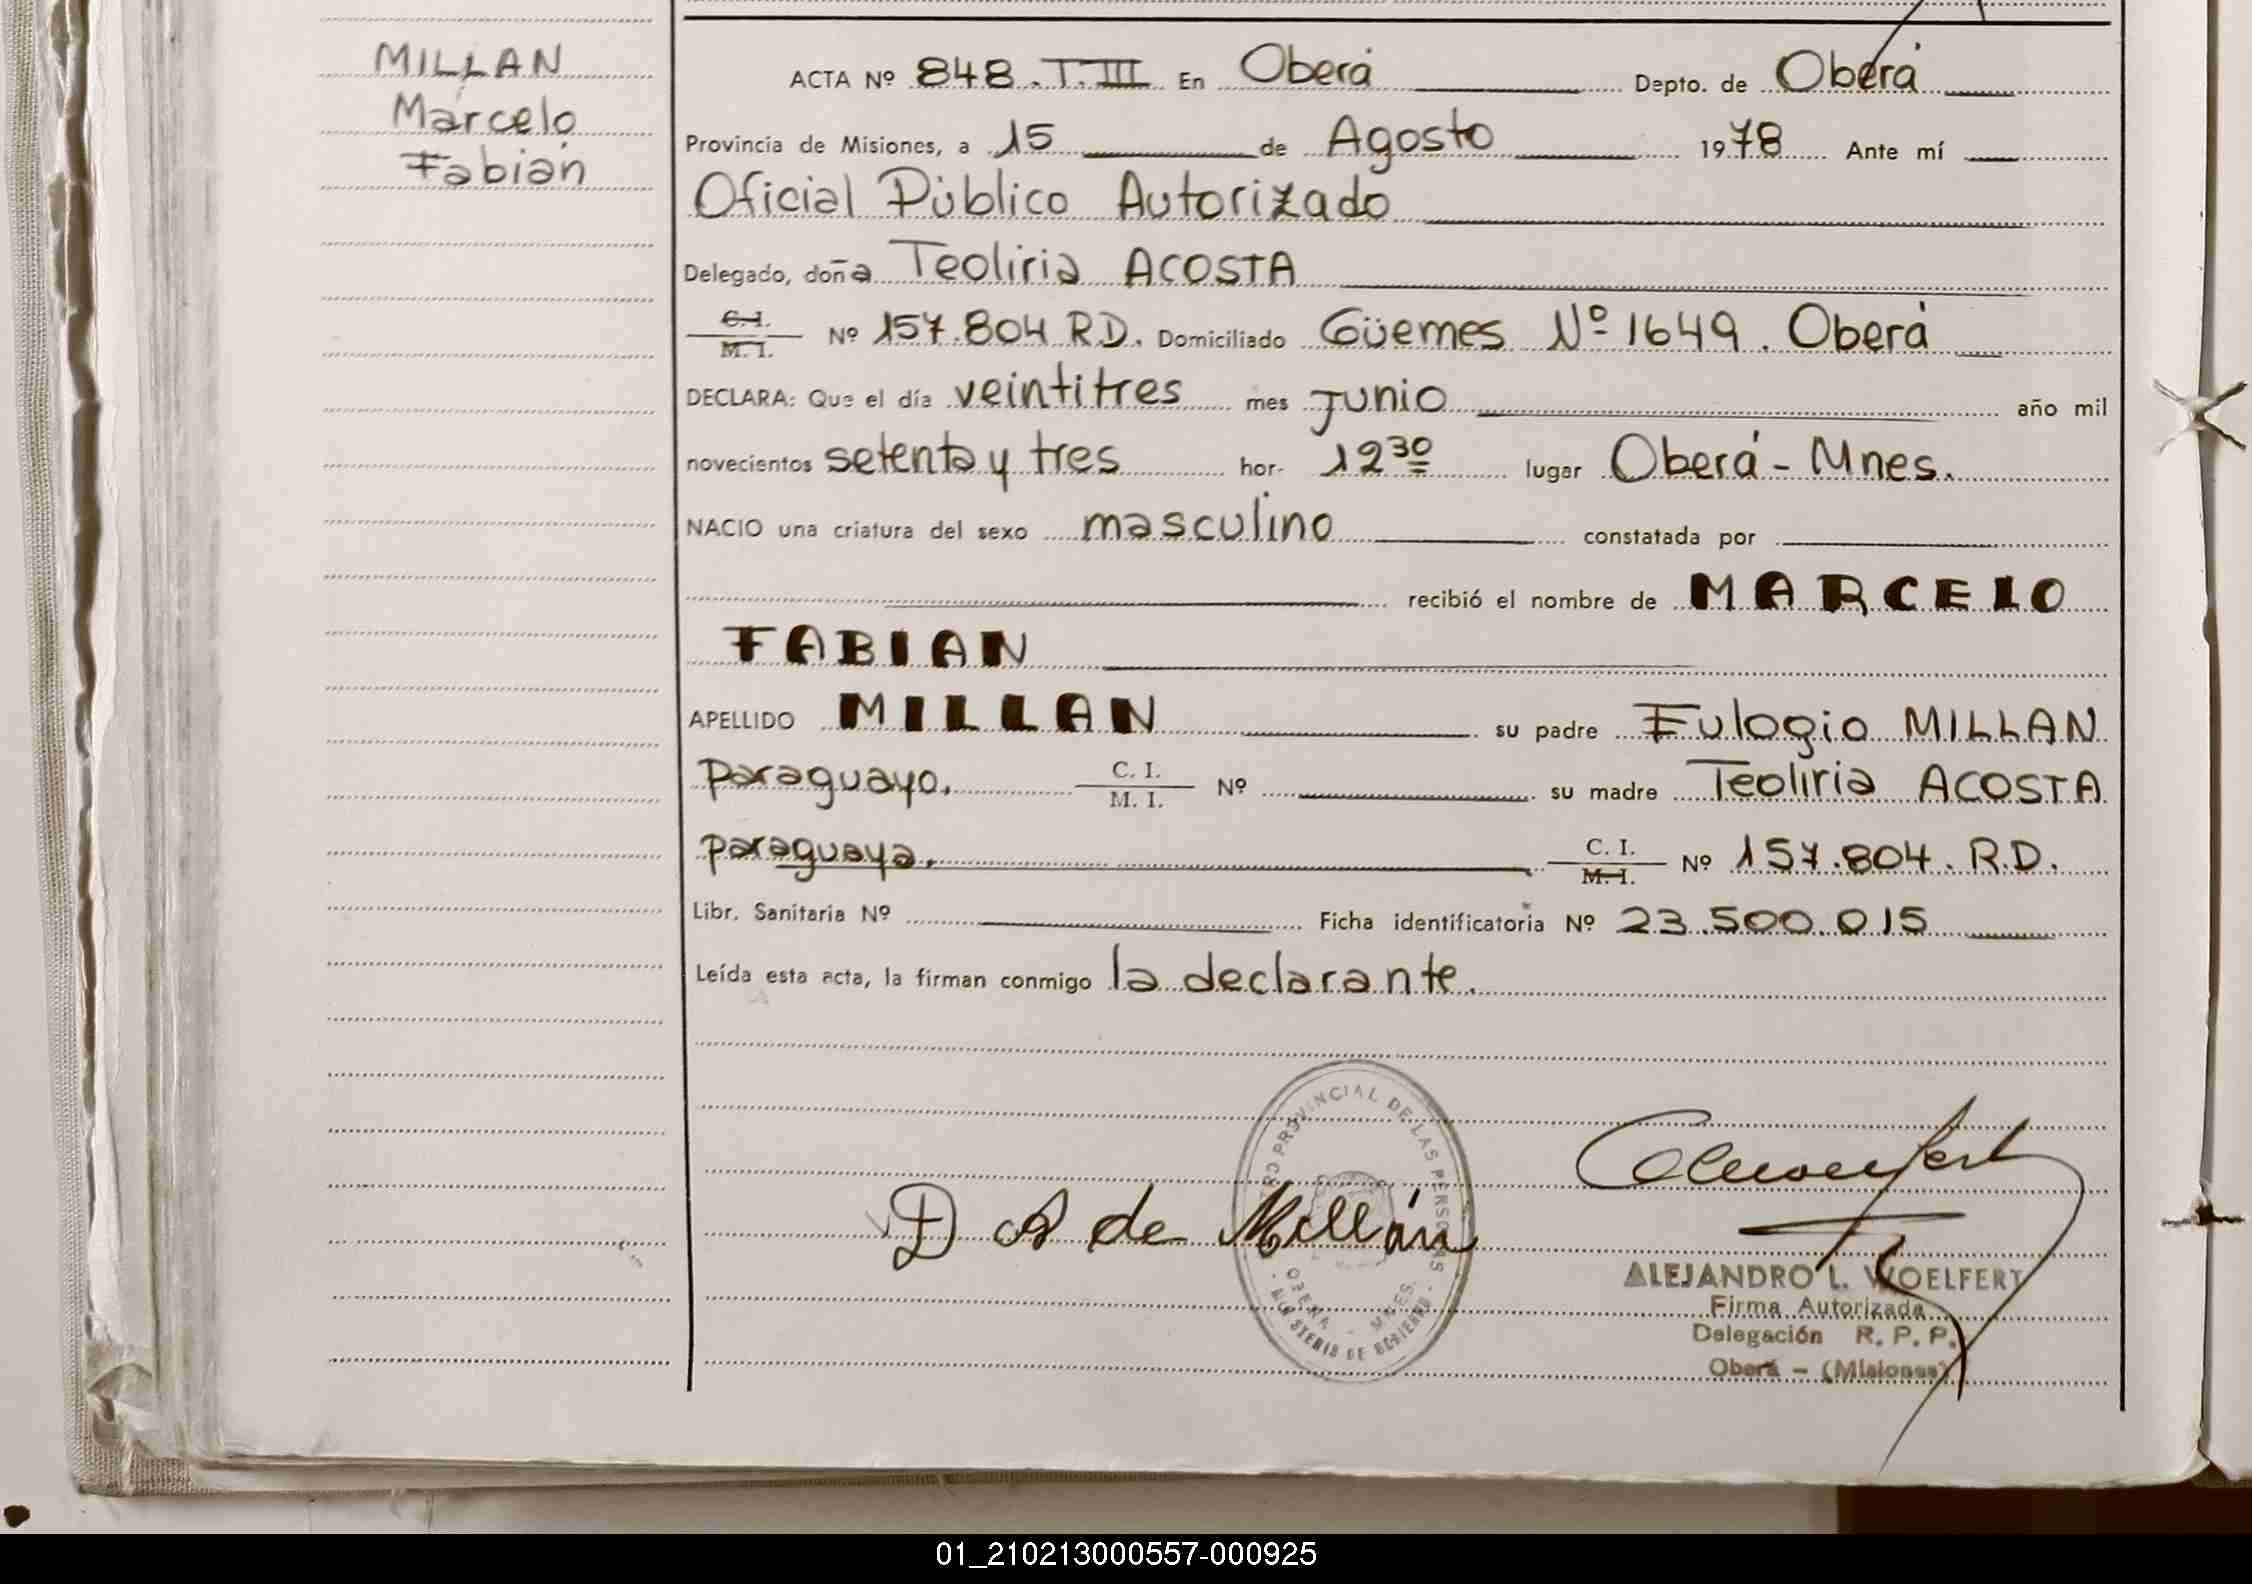 MILLAN
Marcelo
Fabián
ACTA Nº 848.T.III En Oberá Depto. de Oberá
Provincia de Misiones, a 15 de Agosto 1978 Ante mí
Oficial Público Autorizado
Delegado, doña Teoliria ACOSTA
C.I.
M.I. Nº 157.804 R.D. Domiciliado Güemes Nº 1649. Oberá
DECLARA: Que el día veintitres mes junio año mil
novecientos setenta y tres hor. 12 30 lugar Oberá - Mnes.
NACIO una criatura del sexo masculino constatada por
recibió el nombre de MARCELO
FABIAN
APELLIDO MILLAN su padre Eulogio MILLAN
paraguayo. C. I.
M. I. Nº su madre Teoliria ACOSTA
paraguaya. C. I.
M. I. Nº 157.804. R.D.
Libr. Sanitaria Nº Ficha identificatoria Nº 23.500.015
Leída esta acta, la firman conmigo la declarante.
PROVINCIAL DE LAS PERSONAS
OBERA - MNES.
MINISTERIO DE GOBIERNO
D A de Millán
ALEJANDRO L. WOELFERT
Firma Autorizada
Delegación R. P. P.
Oberá - (Misiones)
01_210213000557-000925